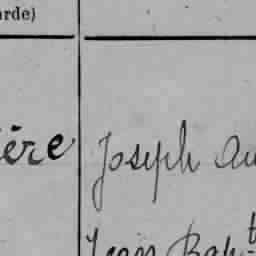 arde)
ière Joseph Au
Jean Bap^t